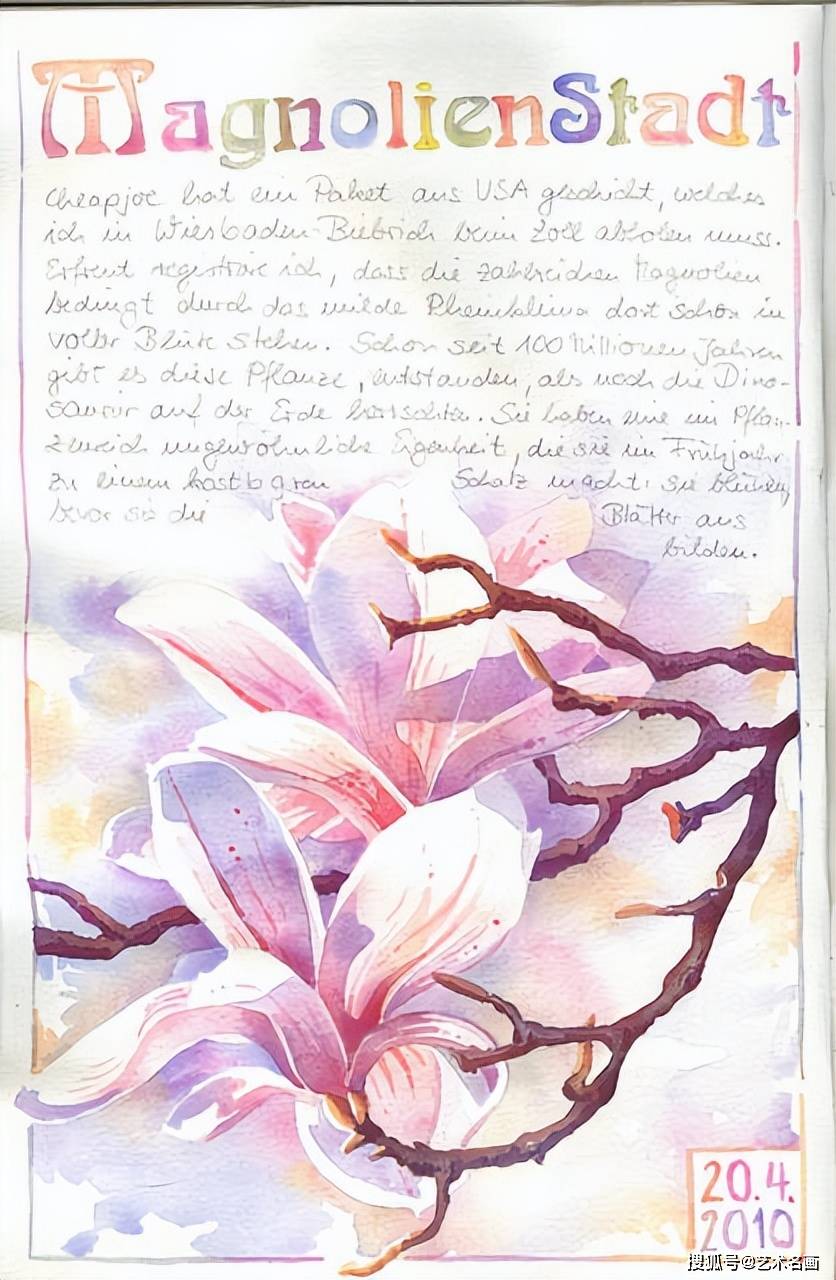 MagnolienStadt
Cheapjoe hat ein Paket aus USA geschickt, welches
ich in Wiesbaden-Biebrich beim Zoll abholen muss.
Erfreut registriere ich, dass die zahlreichen Magnolien
bedingt durch das milde Rheinklima dort schon in
voller Blüte stehen. Schon seit 100 Millionen Jahren
gibt es diese Pflanze, entstanden, als noch die Dino-
saurier auf der Erde herrschten. Sie haben eine im Pflan-
zenreich ungewöhnliche Eigenheit, die sie im Frühjahr
zu einem kostbaren Schatz macht: sie blühen,
bevor sie die Blätter aus
bilden.
20.4.
2010
搜狐号@艺术名画